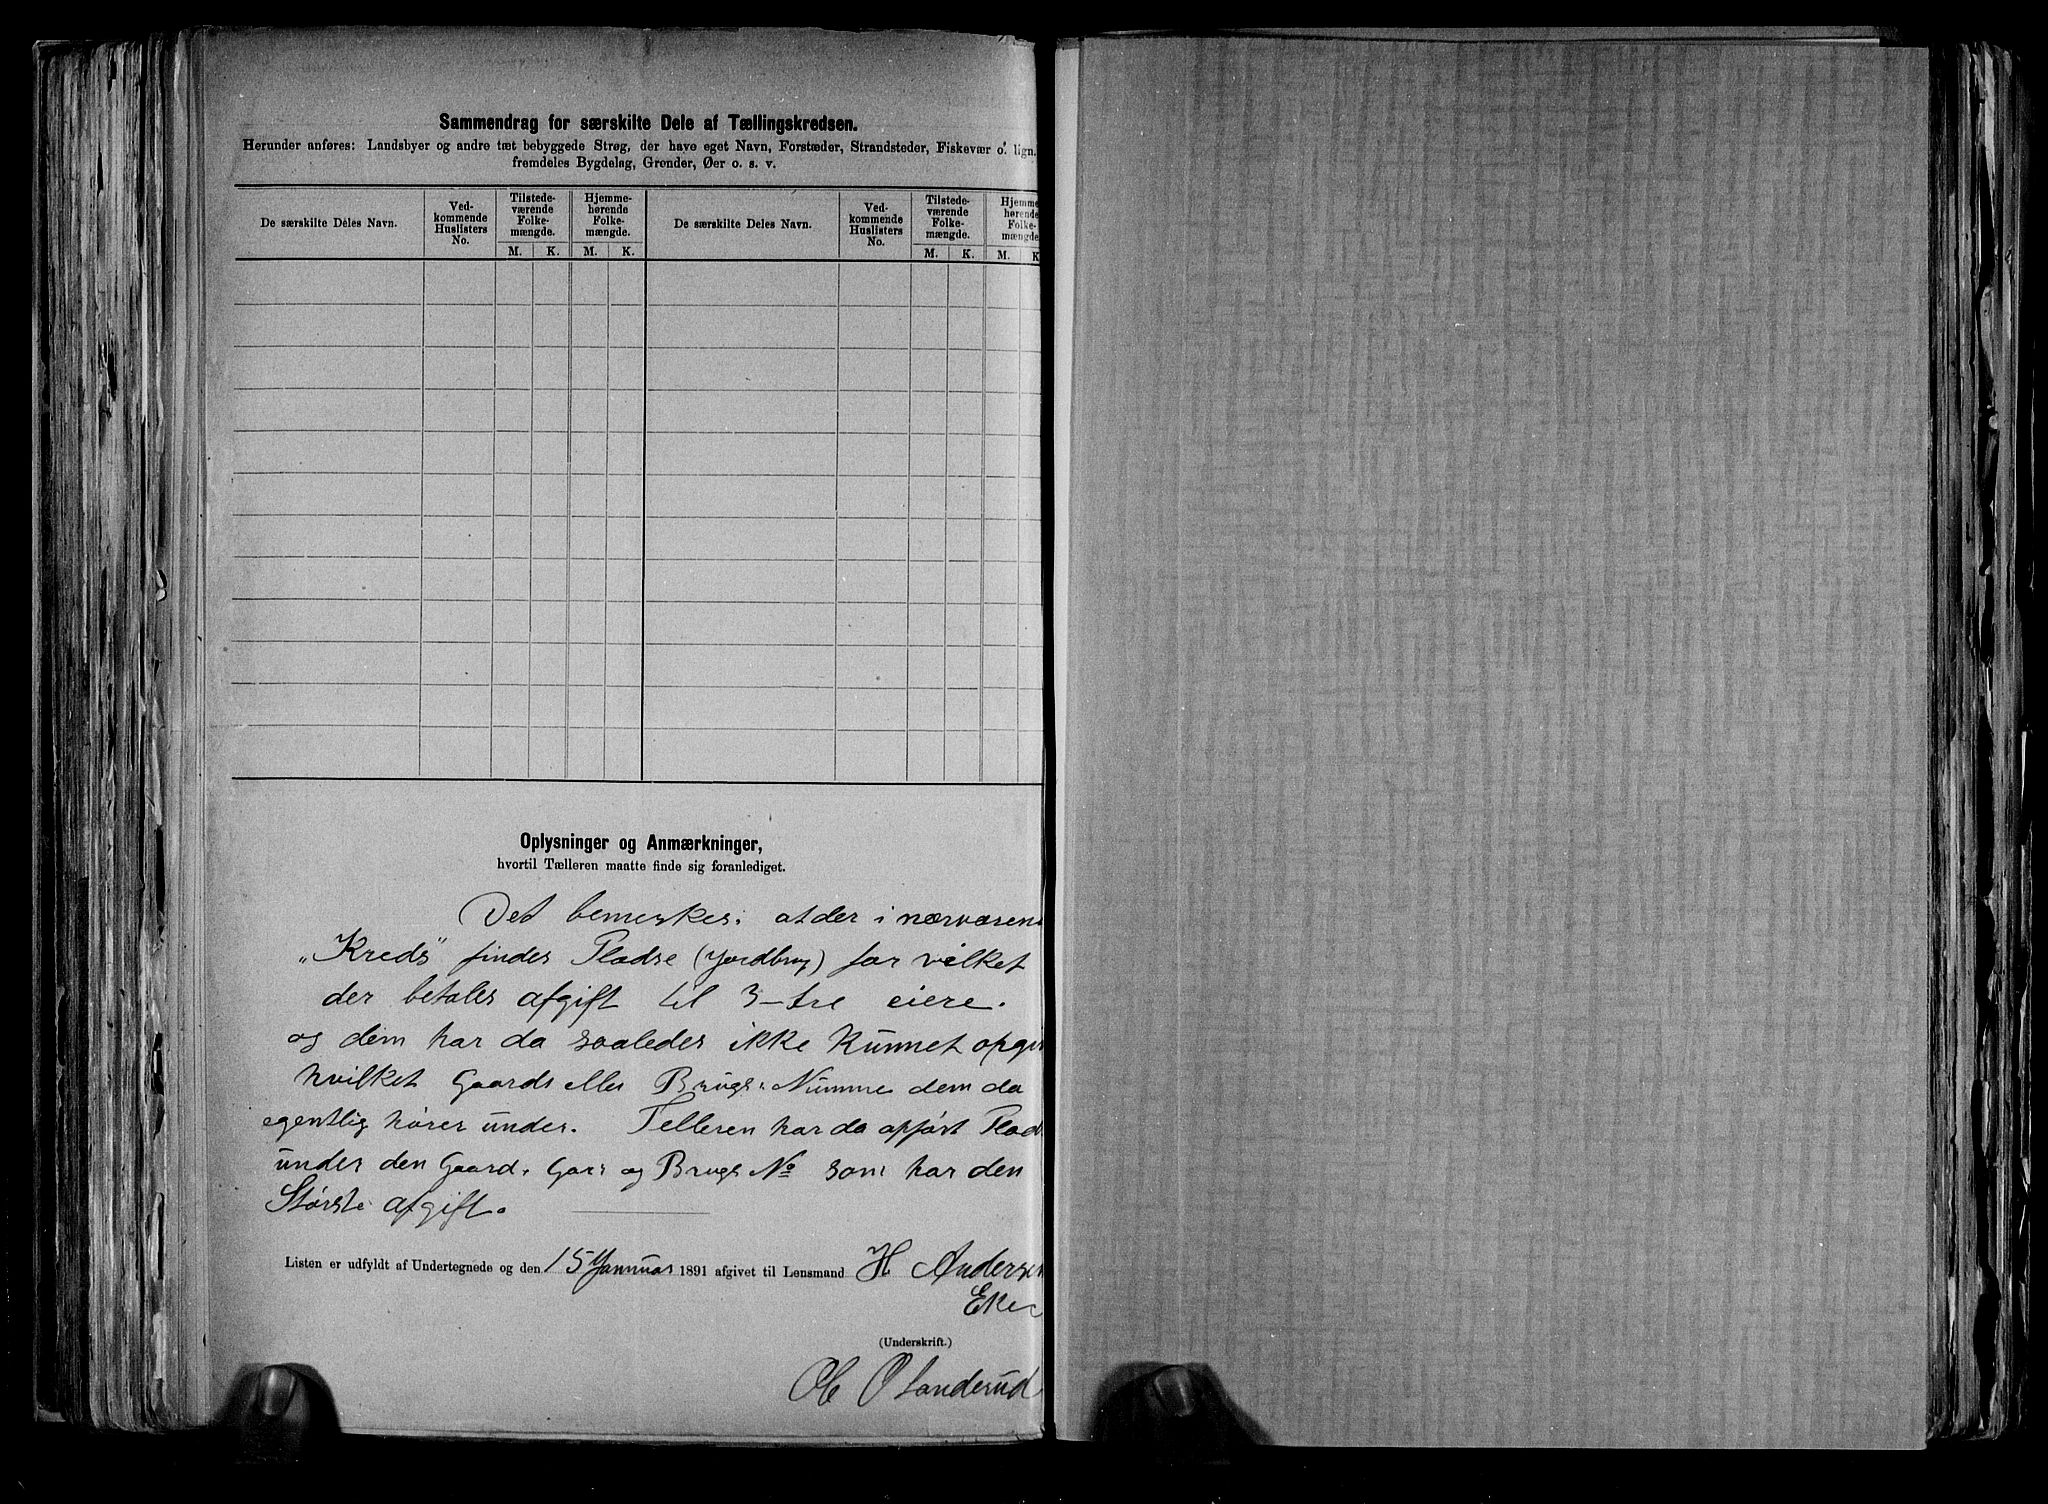 Sammendrag for særskilte Dele af Tællingskredsen.
Herunder anføres: Landsbyer og andre tæt bebyggede Strøg, der have eget Navn, Forstæder, Strandsteder, Fiskevær o. lign.
fremdeles Bygdelag, Grender, Øer o. s. v.
De særskilte Deles Navn.
Ved-
kommende
Huslisters
No.
Tilstede-
værende
Folke-
mængde.
M. K.
Hjemme-
hørende
Folke-
mængde.
M. K.
De særskilte Deles Navn.
Ved-
kommende
Huslisters
No.
Tilstede-
værende
Folke-
mængde.
M. K.
Hjemme
hørende
Folke-
mængde
M. K
Oplysninger og Anmærkninger,
hvortil Tælleren maatte finde sig foranlediget.
Det bemerkes: at der i nærværen
"Kreds" findes Pladse (Jordbrug) for vilket
der betales afgift til 3-tre eiere.
og dem har da saaledes ikke kunnet opgi
hvilket Gaards eller Brugs Numme dem da
egentlig hører under. Telleren har da opført Plad
under den Gaard, Gars og Brugs No som har den
Største afgift.
Listen er udfyldt af Undertegnede og den 15 Januar 1891 afgivet til Lensmand H Andersen
(Underskrift.)